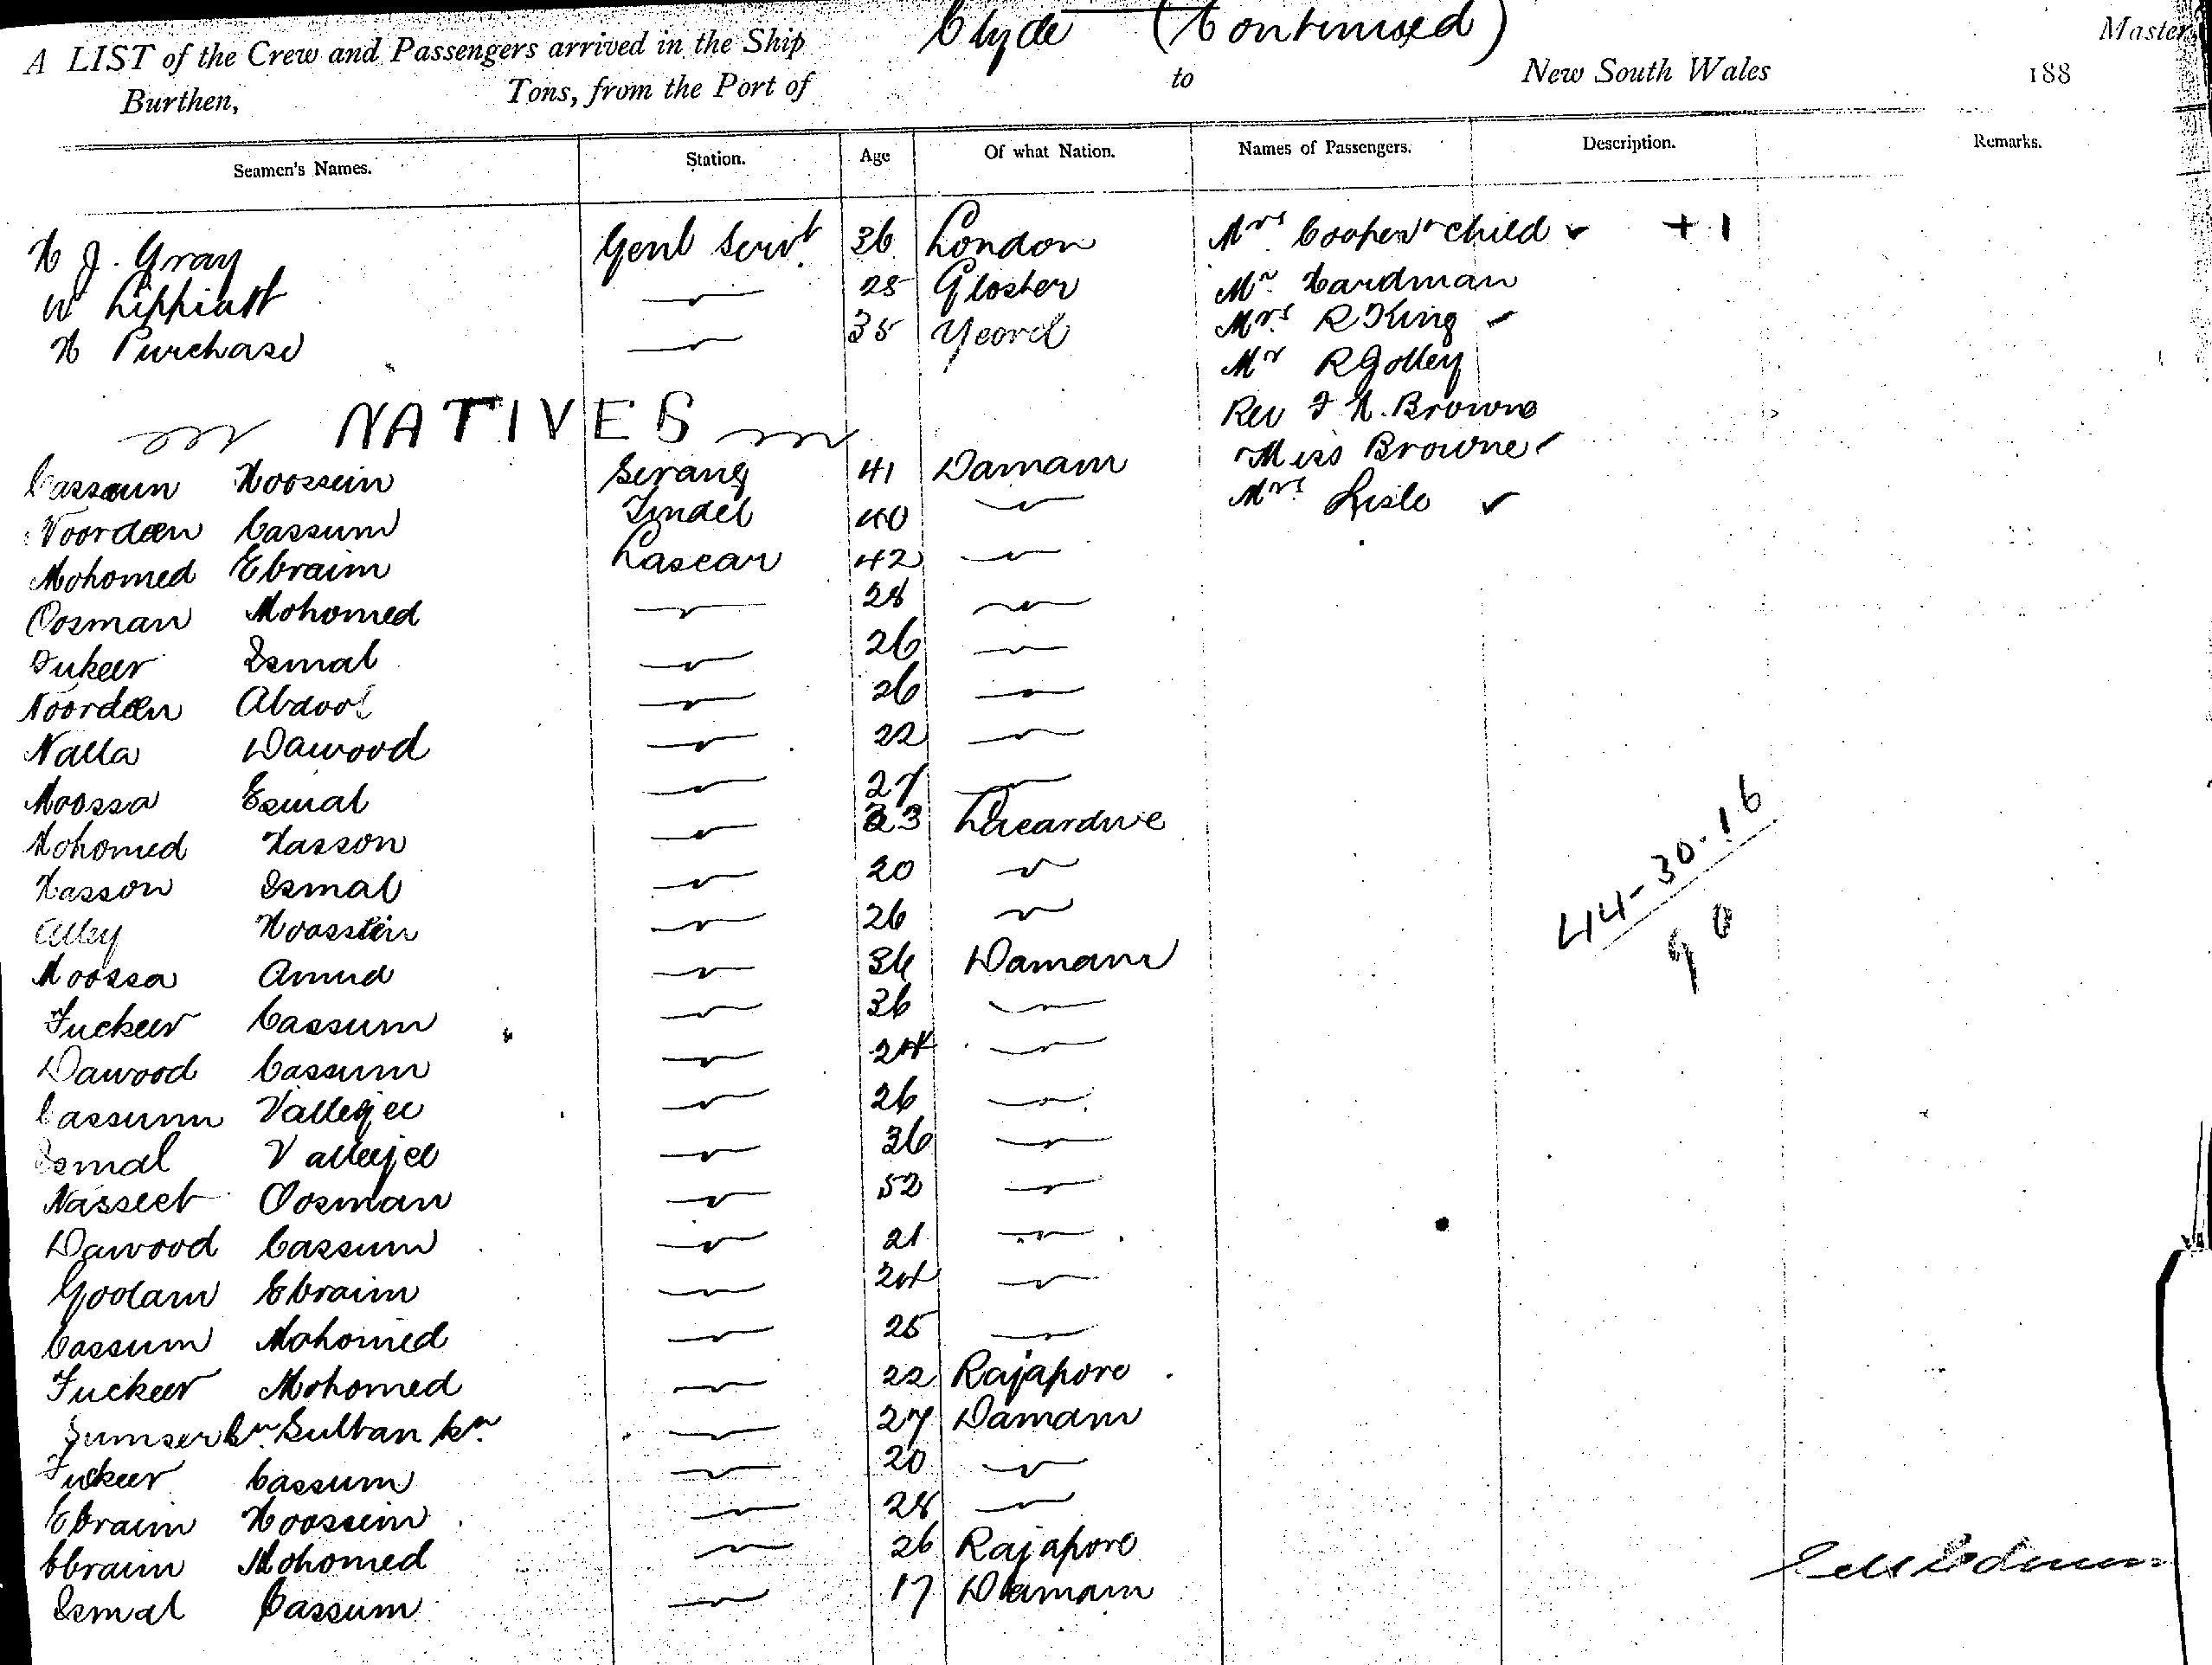 Clyde (Continued)
A LIST of the Crew and Passengers arrived in the Ship Master,
Burthen, Tons, from the Port of to New South Wales 188
Seamen's Names. Station. Age Of what Nation. Names of Passengers. Description. Remarks.
H J. Gray Genl Servt. 36 London Mrs. Cooper & child ✓ + 1
W Lippiatt 28 Gloster Mr. Hardman
H Purchase 35 Yeovil Mrs. R King ✓
Mr R Golley
Rev F H. Browne
NATIVES Miss Browne ✓
Cassum Hoossein Serang 41 Damam Mrs. Lisle ✓
Noordeen Cassum Tindel 40
Mohomed Ebraim Lascar 42
Oosman Mohomed 28
Fukeer Esmal 26
Noordeen Abdool 26
Nalla Dawood 22
Moossa Esmal 27
Mohomed Hasson 23
Hasson Esmal 20
Alley Hoossein 26
Moossa Amud 36 Damam
Fuckeer Cassum 36
Dawood Cassum 24
Cassum Valleejee 26
Esmal Valleejee 36
Nasseeb Oosman 52
Dawood Cassum 21
Goolam Ebraim 24
Cassum Mohomed 25
Fuckeer Mohomed 22 Rajapore
Sumser Kn. Sultan Kn. 27 Damam
Fuckeer Cassum 20
Ebraim Hoossein 28
Ebraim Mohomed 26 Rajapore
Esmal Cassum 17 Damam
44-30-16
90